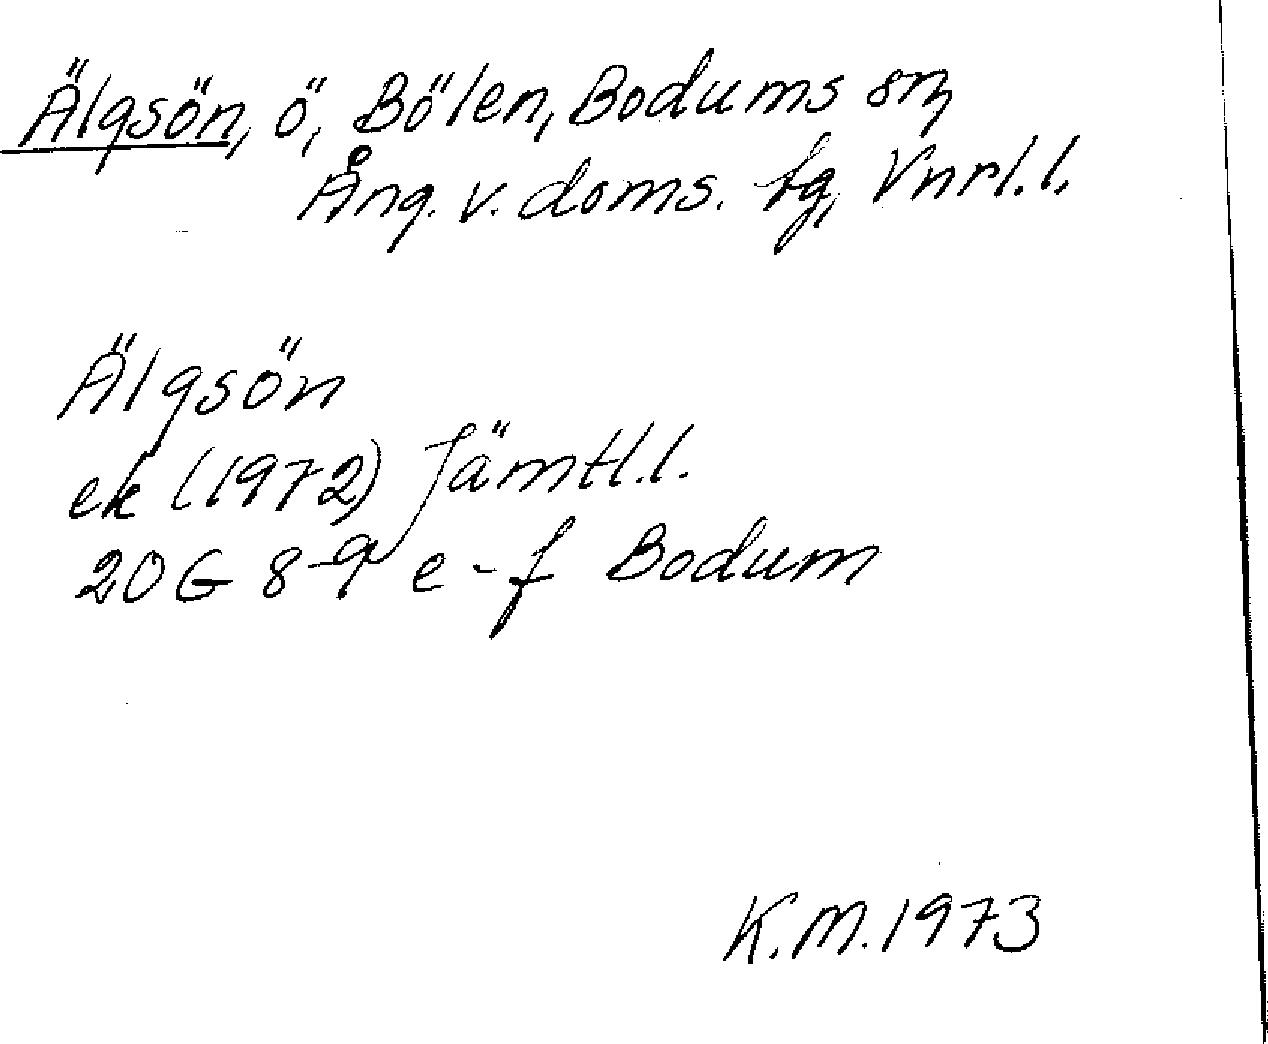 Älgsön, ö, Bölen, Bodums sn,
Ång. v. doms. tg, Vnrl. l.
Älgsön
ek (1972) Jämtl. l.
20 G 8-9 e-f Bodum
K.M. 1973